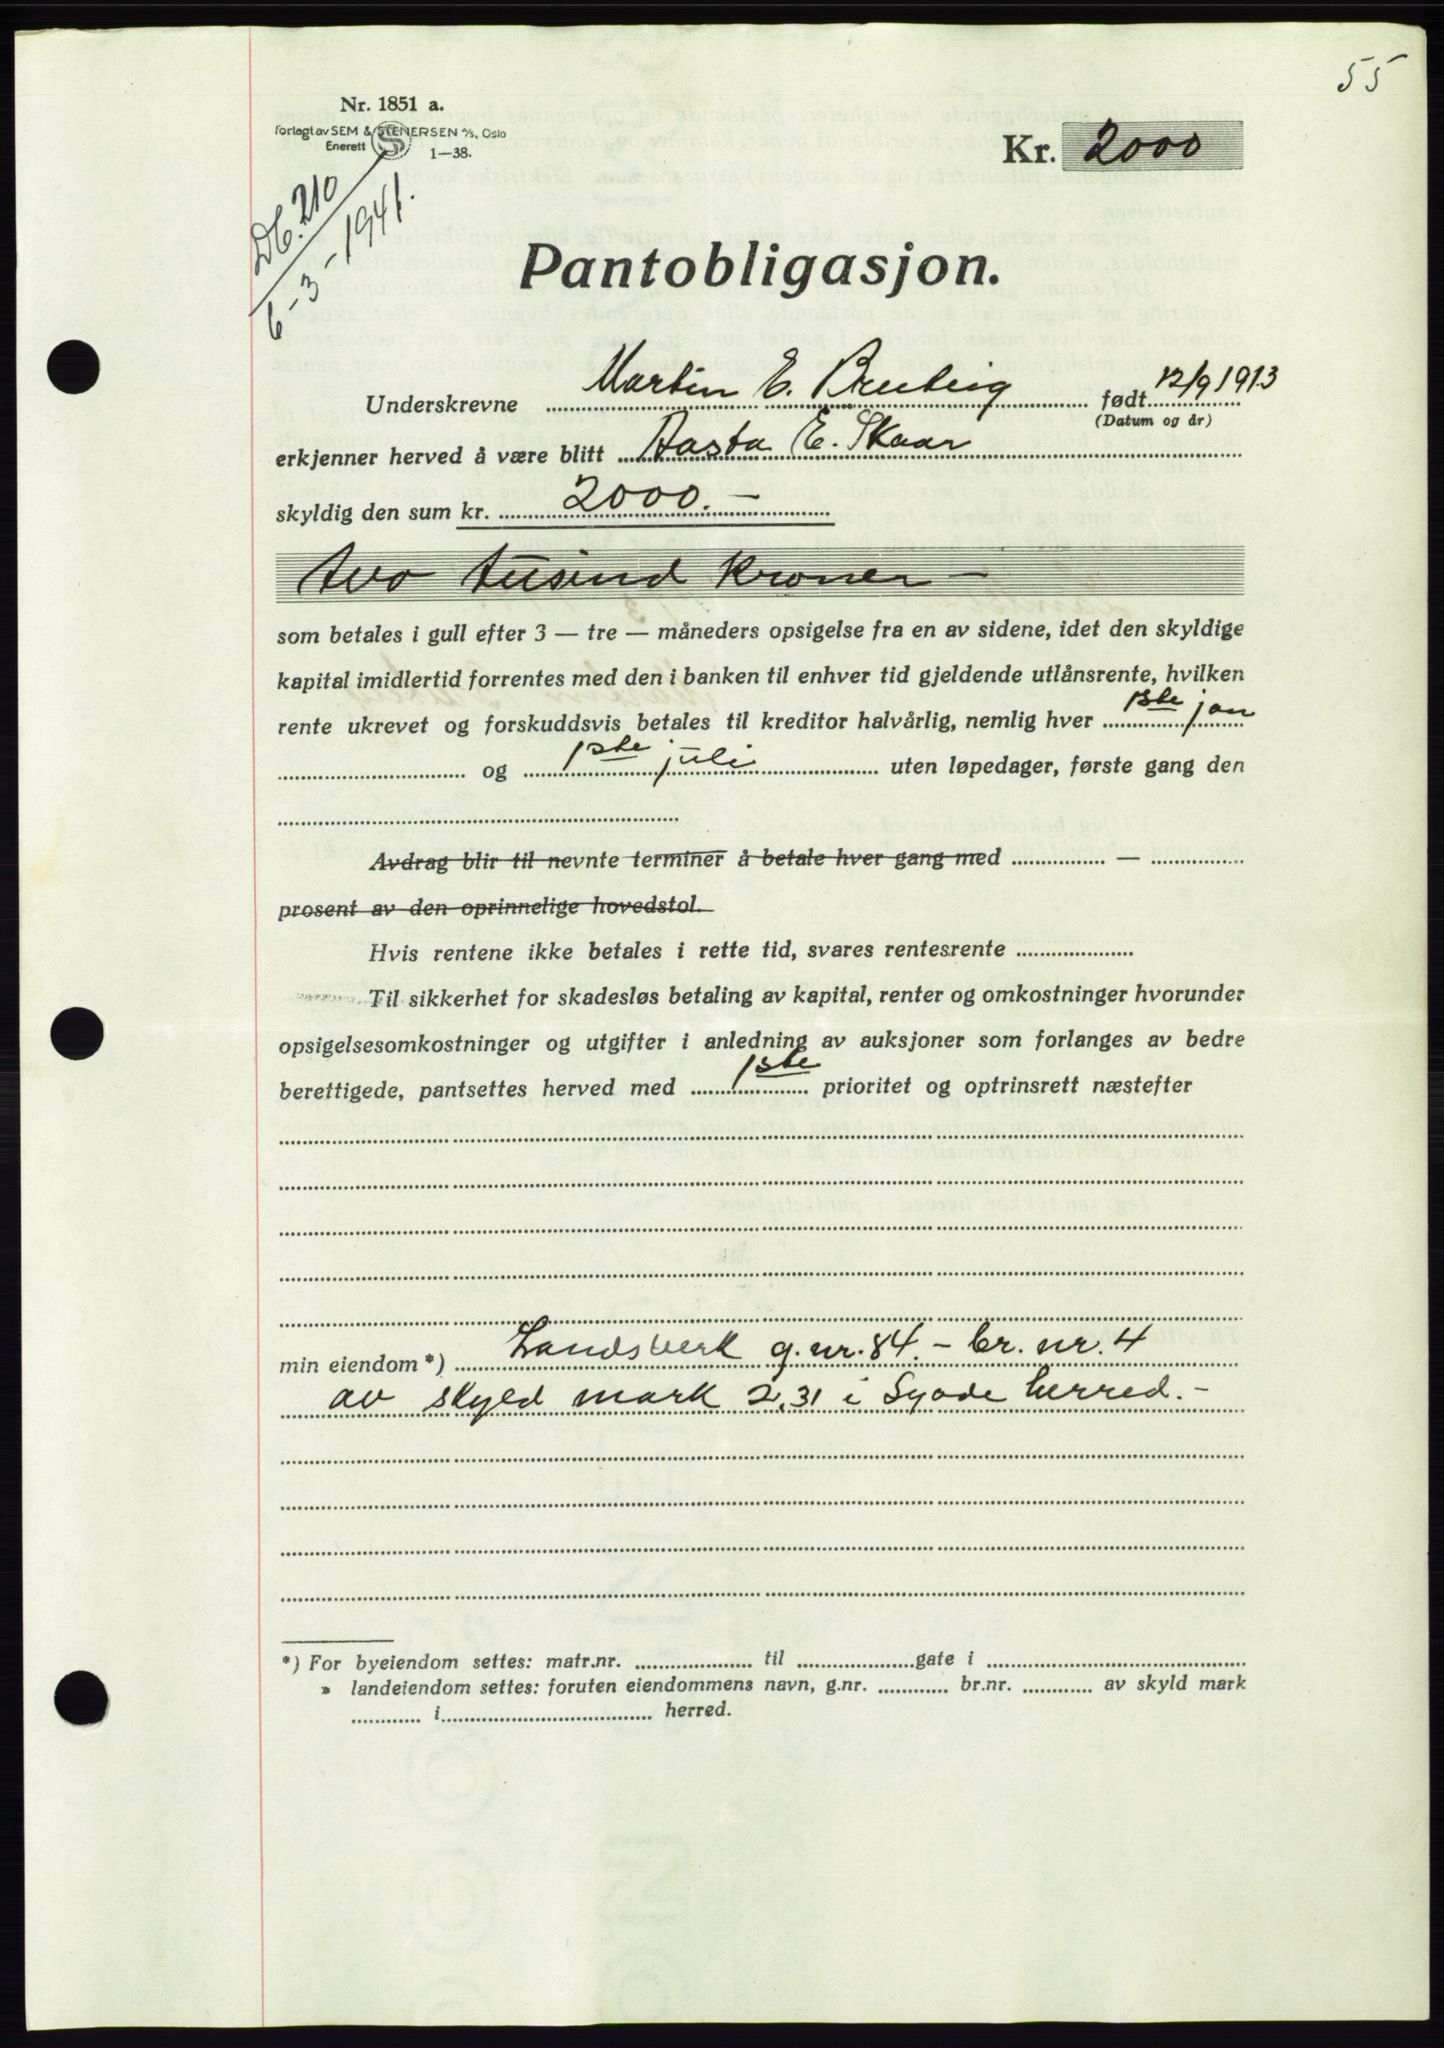 55
Nr. 1851 a.
Forlagt av SEM & STENERSEN A/S, Oslo
Enerett
1—38.
Kr. 2000
Db. 210
6-3-1941.
Pantobligasjon.
Underskrevne Martin E. Brubeig født 12/9 1913
(Datum og år)
erkjenner herved å være blitt Aasta E. Skaar
skyldig den sum kr. 2000.—
tvo tusind kroner —
som betales i gull efter 3 — tre — måneders opsigelse fra en av sidene, idet den skyldige
kapital imidlertid forrentes med den i banken til enhver tid gjeldende utlånsrente, hvilken
rente ukrevet og forskuddsvis betales til kreditor halvårlig, nemlig hver 1ste jan
og 1ste juli uten løpedager, første gang den
Avdrag blir til nevnte terminer å betale hver gang med —
prosent av den oprinnelige hovedstol.
Hvis rentene ikke betales i rette tid, svares rentesrente
Til sikkerhet for skadesløs betaling av kapital, renter og omkostninger hvorunder
opsigelsesomkostninger og utgifter i anledning av auksjoner som forlanges av bedre
berettigede, pantsettes herved med 1ste prioritet og optrinsrett næstefter
min eiendom*) Landsverk g.nr. 84. – br. nr. 4
av skyld mark 2,31 i Syvde herred. –
*) For byeiendom settes: matr.nr. til gate i
» landeiendom settes: foruten eiendommens navn, g.nr. br.nr. av skyld mark
i herred.